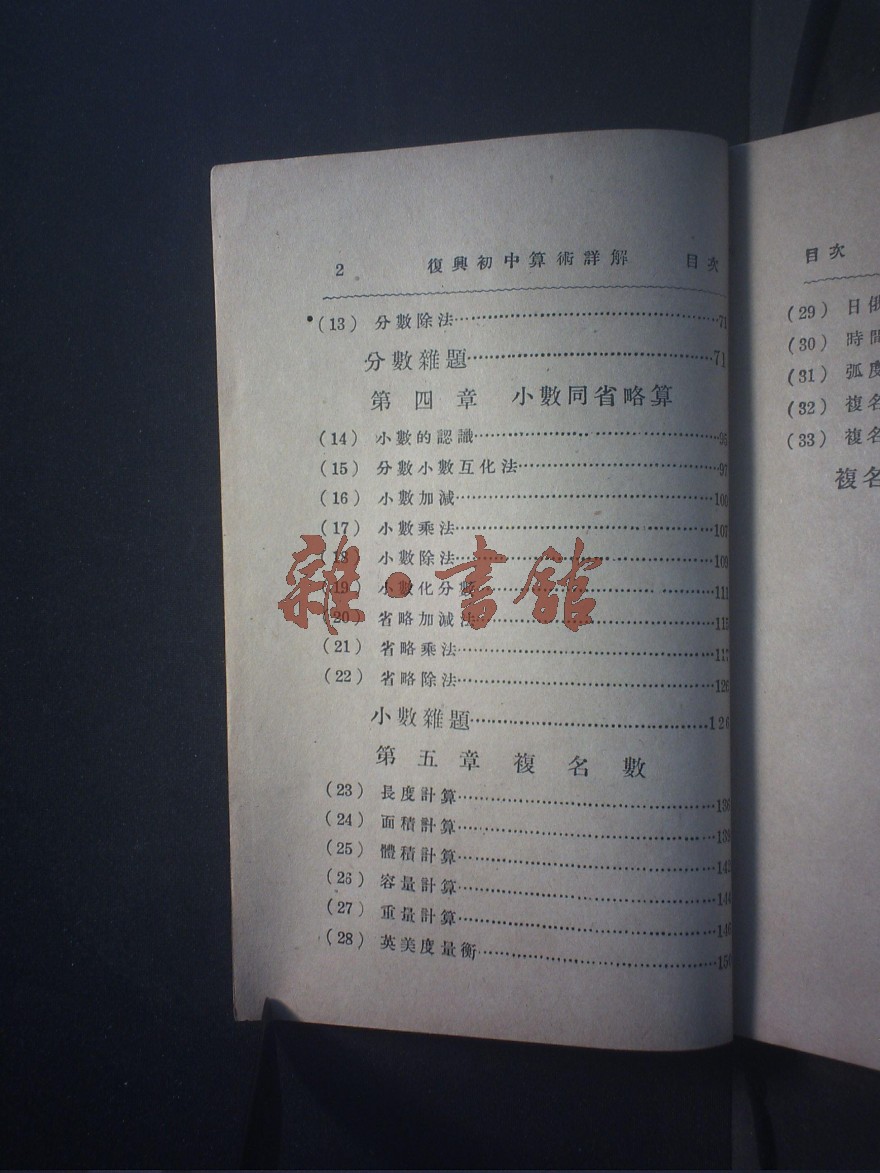 2 復興初中算術詳解 目次
(13) 分數除法……71
分數雜題……71
第四章 小數同省略算
(14) 小數的認識……95
(15) 分數小數互化法……97
(16) 小數加減……100
(17) 小數乘法……107
(18) 小數除法……109
(19) 小數化分數……111
(20) 省略加減法……115
(21) 省略乘法……117
(22) 省略除法……126
小數雜題……126
第五章 複名數
(23) 長度計算……136
(24) 面積計算……139
(25) 體積計算……142
(26) 容量計算……144
(27) 重量計算……146
(28) 英美度量衡……150
雜·書館
目次
(29) 日俄
(30) 時間
(31) 弧度
(32) 複名
(33) 複名
複名